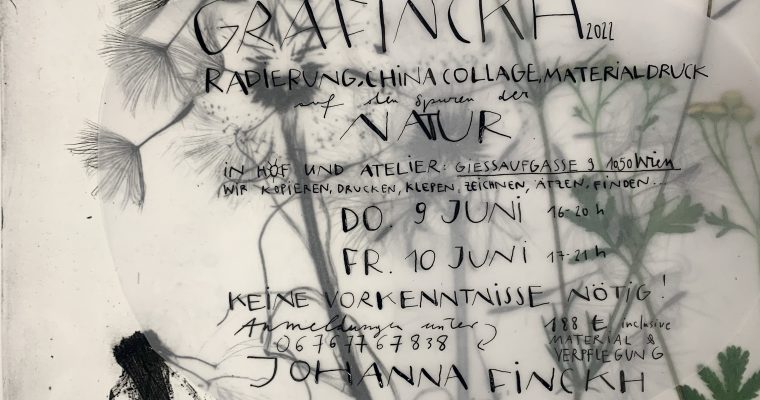 GRAFINCKH 2022
RADIERUNG, CHINA COLLAGE, MATERIALDRUCK
auf den Spuren der
NATUR
IN HOF UND ATELIER: GIESSAUFGASSE 9 1050 Wien
WIR KOPIEREN, DRUCKEN, KLEPEN, ZEICHNEN, ÄTZEN, FINDEN...
DO. 9 JUNI 16-20 h
FR. 10 JUNI 17-21 h
KEINE VORKENNTNISSE NÖTIG!
Anmeldungen unter
06767767838
188 € inclusive
MATERIAL &
VERPFLEGUNG
JOHANNA FINCKH